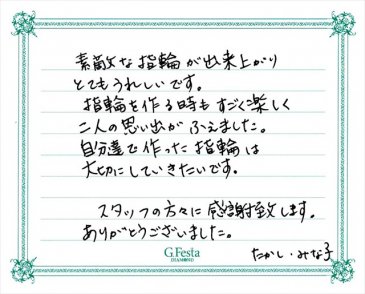 素敵な指輪が出来上がり
とてもうれしいです。
指輪を作る時もすごく楽しく
二人の思い出がふえました。
自分達で作った指輪は
大切にしていきたいです。
スタッフの方々に感謝致します。
ありがとうございました。
G.Festa
DIAMOND
たかし・みな子